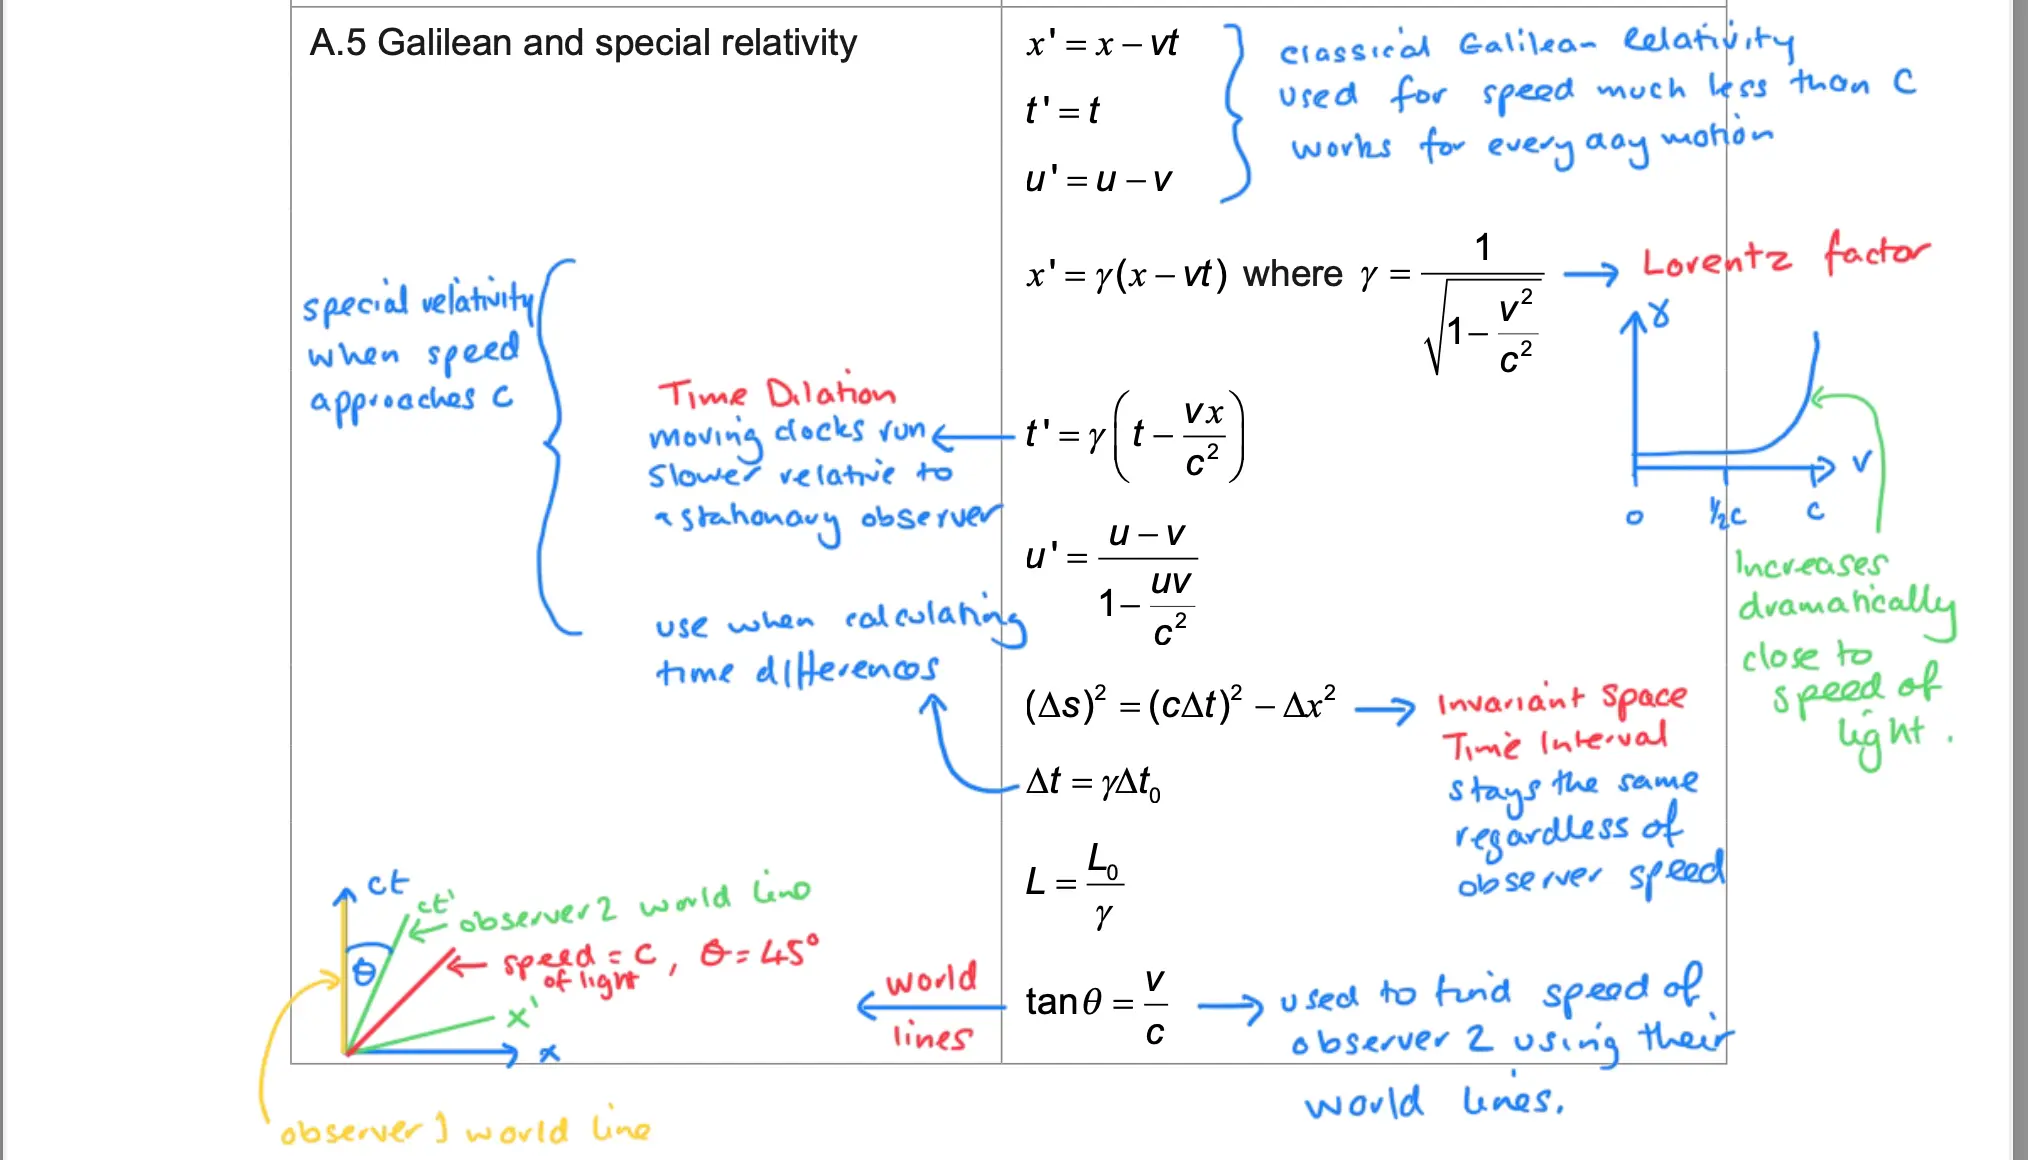 A.5 Galilean and special relativity
x' = x − vt
t' = t
u' = u − v
classical Galilean Relativity
used for speed much less than C
works for everyday motion
x' = γ(x − vt) where γ = 1/√(1 − v²/c²)
Lorentz factor
γ
v
0
½c
c
Increases
dramatically
close to
speed of
light.
special relativity
when speed
approaches C
Time Dilation
moving clocks run
slower relative to
a stationary observer
t' = γ(t − vx/c²)
u' = (u − v)/(1 − uv/c²)
use when calculating
time differences
(Δs)² = (cΔt)² − Δx²
Invariant Space
Time Interval
stays the same
regardless of
observer speed
Δt = γΔt₀
L = L₀/γ
tanθ = v/c
world
lines
used to find speed of
observer 2 using their
world lines.
ct
ct'
observer 2 world line
speed = c, θ = 45°
of light
θ
x'
x
observer 1 world line